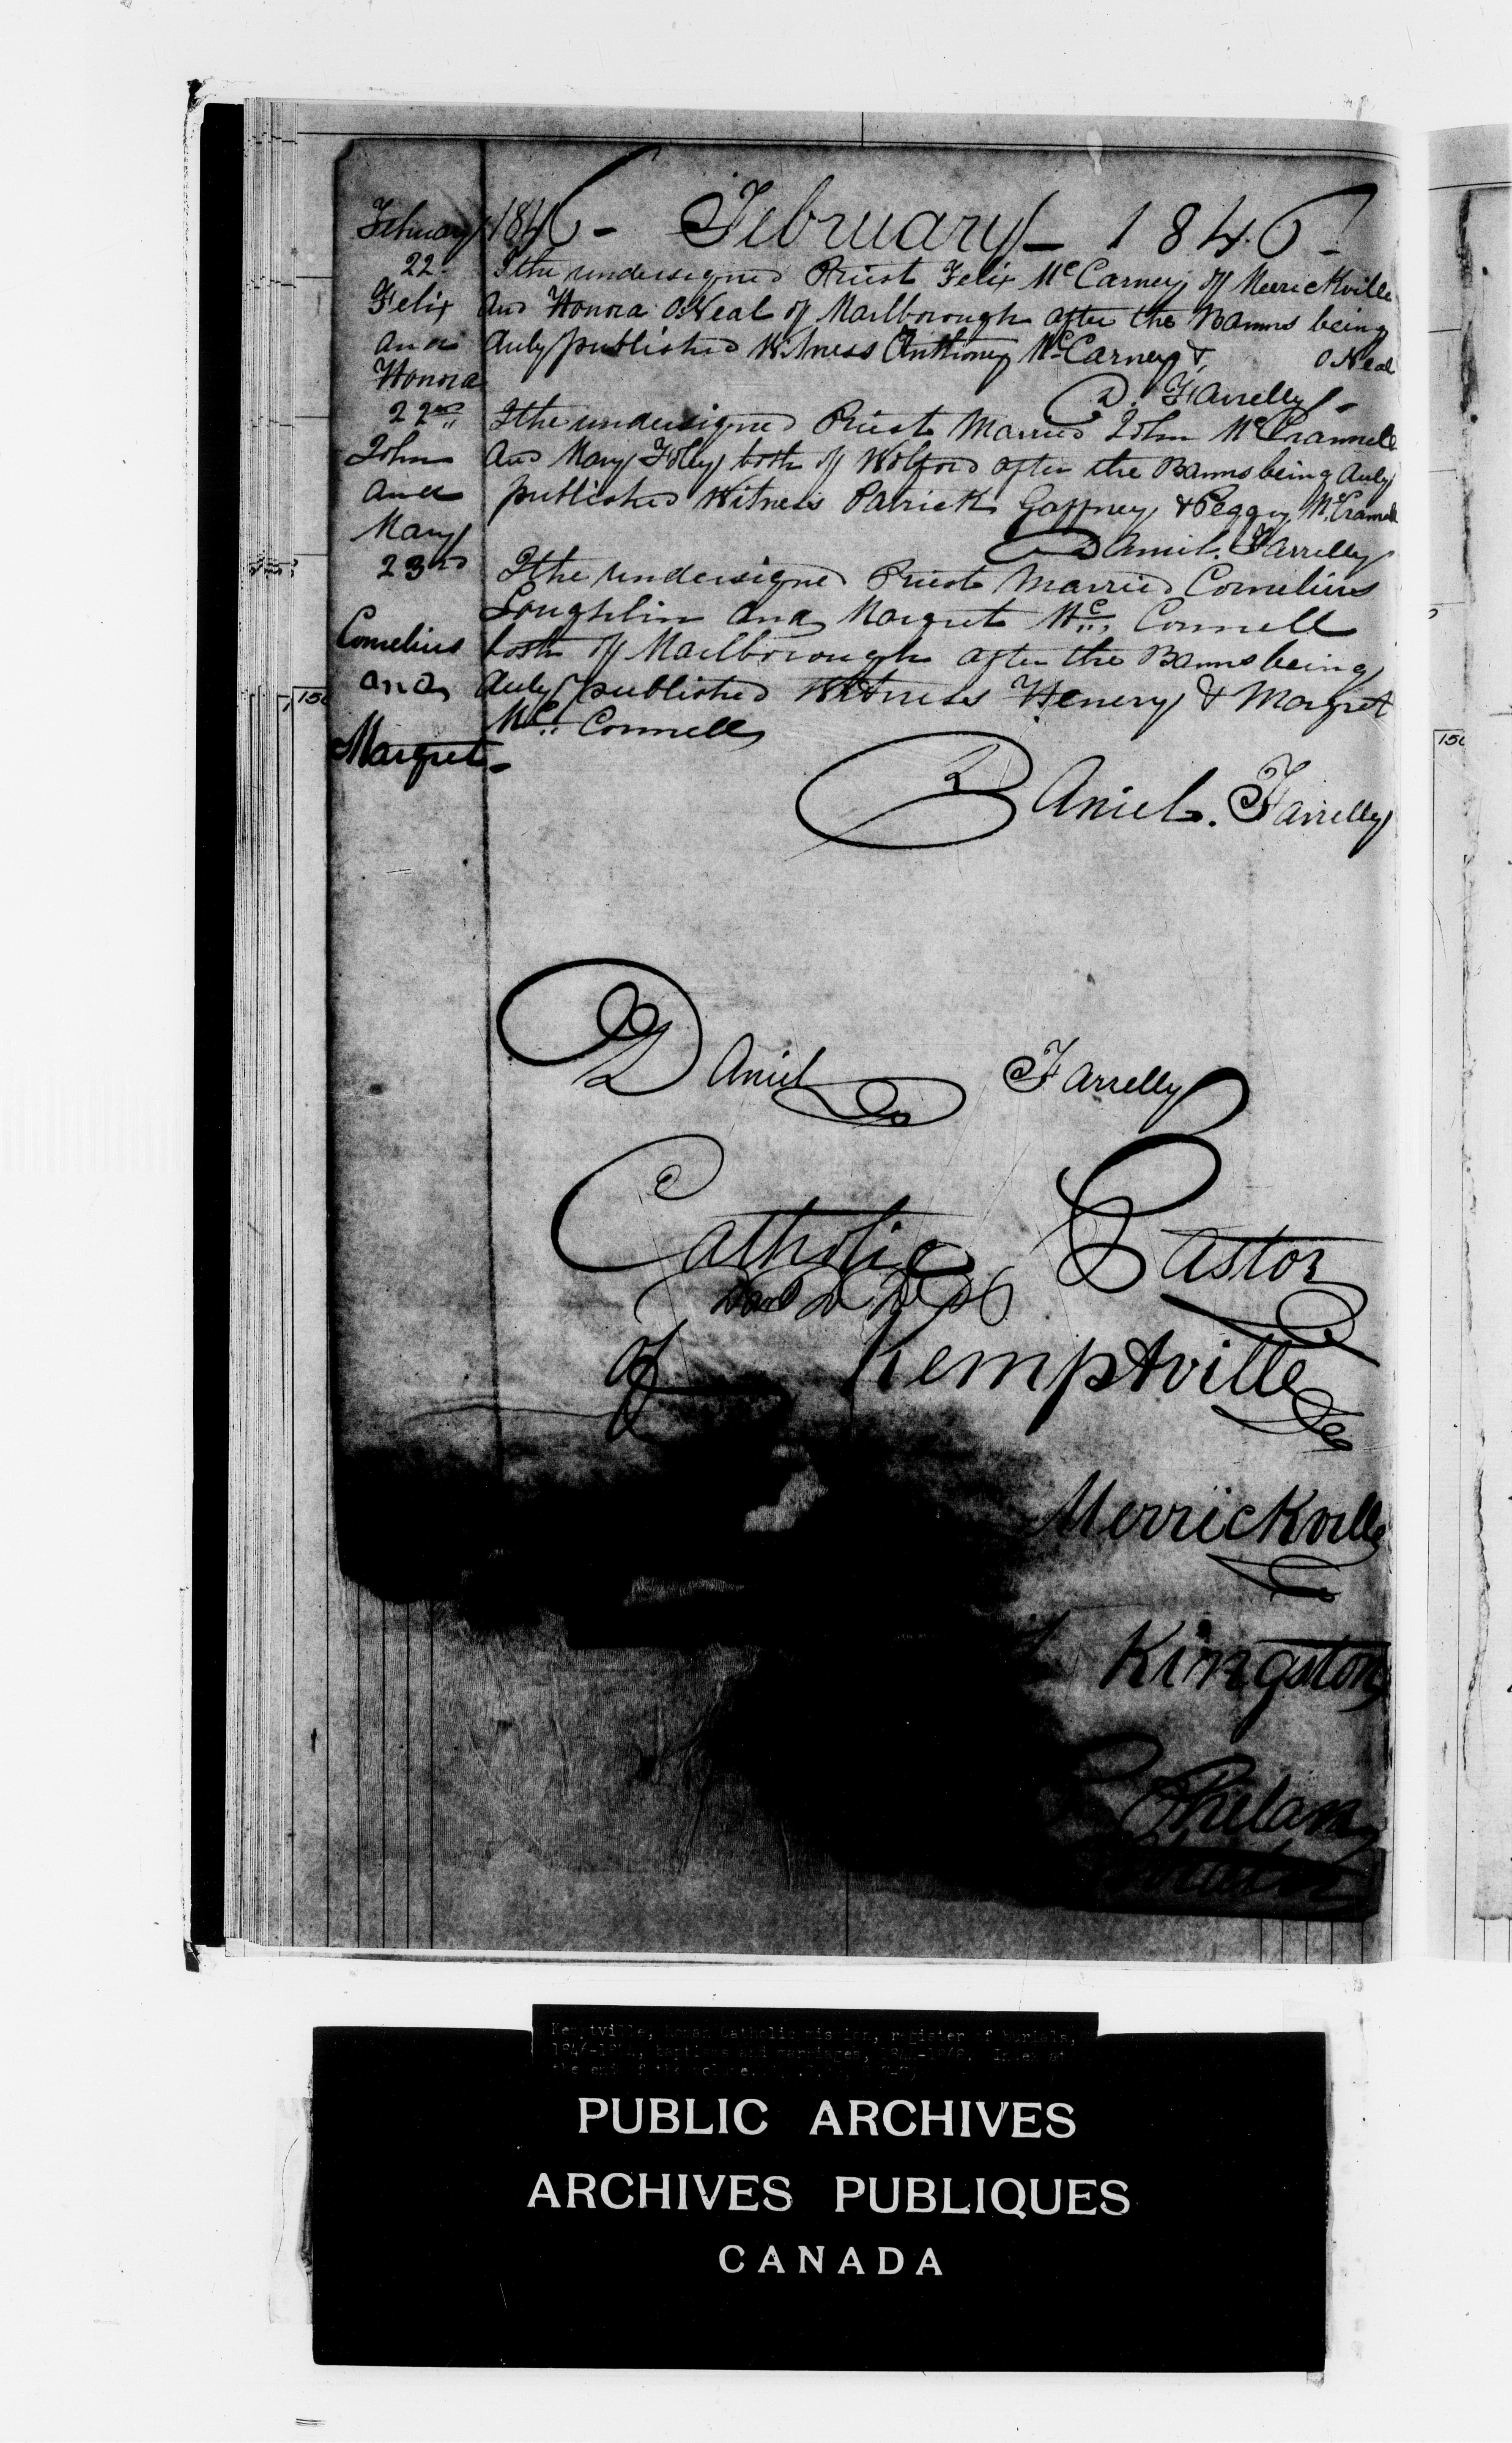 February 1846 - February - 1846 -
22. I the undersigned Priest Felix Mc Carney of Merrickville
Felix and Honora O Neal of Marlborough after the Banns being
and duly published Witness Anthoney Mc Carney & O Neal
Honora D. Farrelly -
22nd I the undersigned Priest Married John Mc Crannell
John and Mary Foley both of Wolford after the Banns being duly
and published Witness Patrick Gaffney & Peggy
Mary Daniel. Farrelly
23rd I the undersigned Priest Married Cornelius
Loughlin and Margret Mc Connell
Cornelius both of Marlborough after the Banns being
and duly published Witness Henery & Margret
Mc Connell
Margret -
Daniel. Farrelly
Daniel Farrelly
Catholic Pastor
of Kemptville
Merrickville
Kingston
Phelan
150
150
Kemptville, Roman Catholic mission, register of burials,
baptisms and marriages, Index at
the end of the volume.
PUBLIC ARCHIVES
ARCHIVES PUBLIQUES
CANADA